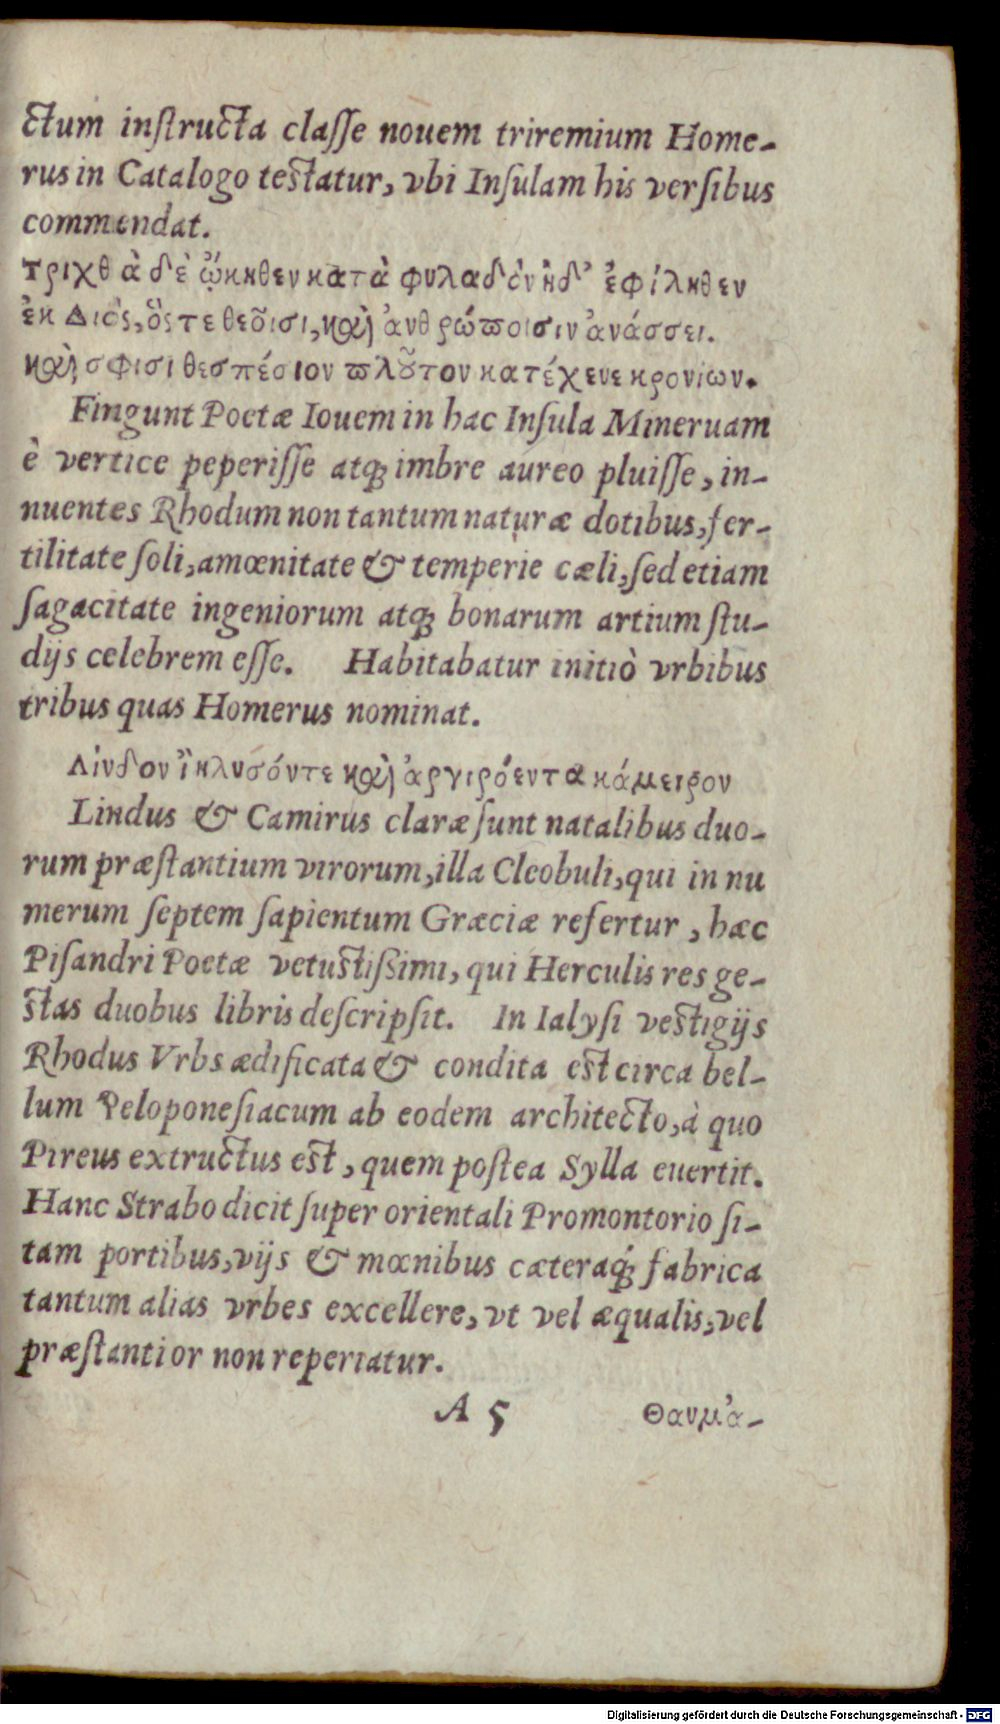 ctum inſtructa claſſe nouem triremium Home-
rus in Catalogo teſtatur, vbi Inſulam his verſibus
commendat.
τριχθὰ δὲ ᾤκηθεν κατὰ φυλαδὸν ἠδ’ ἐφίληθεν
ἐκ Διὸς, ὅς τε θεοῖσι, καὶ ἀνθρώποισιν ἀνάσσει.
καὶ σφισι θεσπέσιον πλοῦτον κατέχευε κρονίων.
Fingunt Poetæ Iouem in hac Inſula Mineruam
è vertice peperiſſe atq; imbre aureo pluiſſe, in-
nuentes Rhodum non tantum naturæ dotibus, fer-
tilitate ſoli, amœnitate & temperie cæli, ſed etiam
ſagacitate ingeniorum atq; bonarum artium ſtu-
dijs celebrem eſſe. Habitabatur initiò vrbibus
tribus quas Homerus nominat.
Λίνδον ἲκλυσόντε καὶ ἀργιρόεντα κάμειρον
Lindus & Camirus claræ ſunt natalibus duo-
rum præſtantium virorum, illa Cleobuli, qui in nu
merum ſeptem ſapientum Græciæ refertur, hæc
Piſandri Poetæ vetuſtiſſimi, qui Herculis res ge-
ſtas duobus libris deſcripſit. In Ialyſi veſtigijs
Rhodus Vrbs ædificata & condita eſt circa bel-
lum Peloponeſiacum ab eodem architecto, à quo
Pireus extructus eſt, quem poſtea Sylla euertit.
Hanc Strabo dicit ſuper orientali Promontorio ſi-
tam portibus, vijs & mœnibus cæteraq́; fabrica
tantum alias vrbes excellere, vt vel æqualis, vel
præſtantior non reperiatur.
A 5 Θαυμἀ-
Digitalisierung gefördert durch die Deutsche Forschungsgemeinschaft - DFG